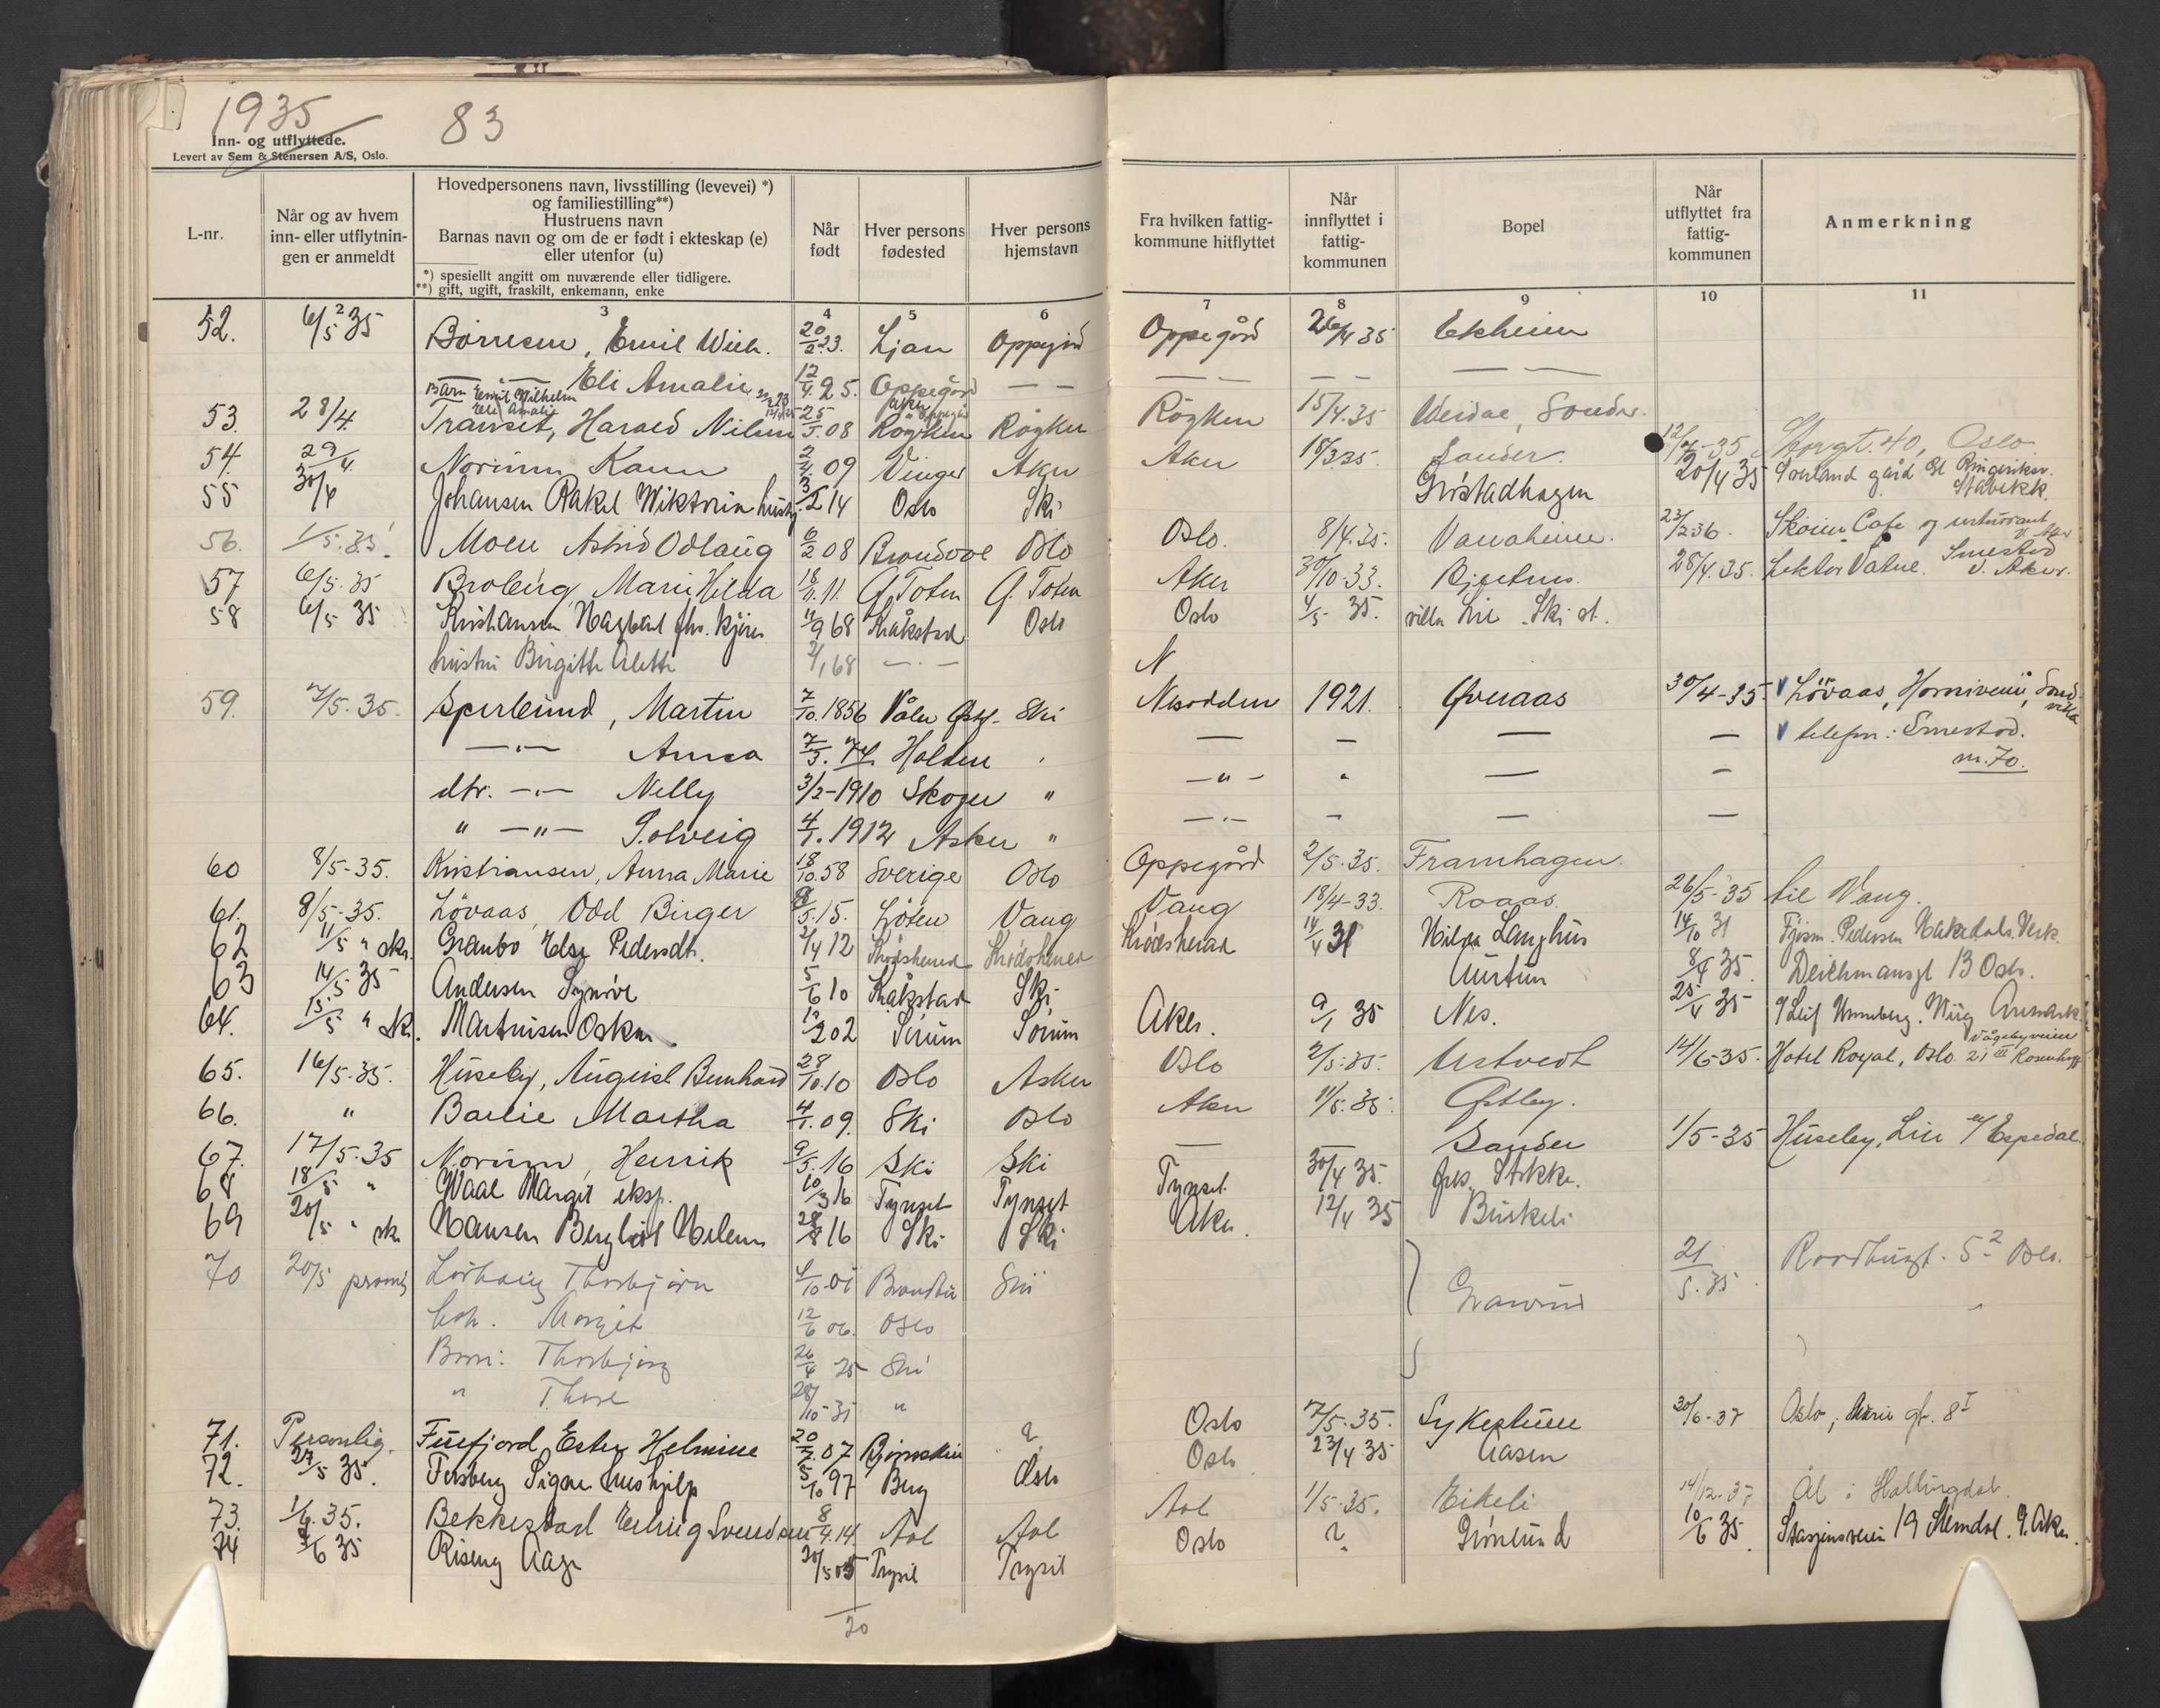 1935 83
Inn- og utflyttede.
Levert av Sem & Stenersen A/S, Oslo.
L-nr.
Når og av hvem
inn- eller utflytnin-
gen er anmeldt
Hovedpersonens navn, livsstilling (levevei) *)
og familiestilling**)
Hustruens navn
Barnas navn og om de er født i ekteskap (e)
eller utenfor (u)
*) spesiellt angitt om nuværende eller tidligere.
**) gift, ugift, fraskilt, enkemann, enke
Når
født
Hver persons
fødested
Hver persons
hjemstavn
Fra hvilken fattig-
kommune hitflyttet
Når
innflyttet i
fattig-
kommunen
Bopel
Når
utflyttet fra
fattig-
kommunen
Anmerkning
2 3 4 5 6 7 8 9 10 11
52. 6/5 35 Børresen, Emil Wilh. 20/2.23. Ljan Oppegård Oppegård 26/4 35 Ekheim
— Eli Amalie 12/4.25. Oppegård — — — — — — — —
Barn Emil Wilhelm
Eli Amalie
53. 28/4 Transet, Harald Nilsen 25/5.08 Røyken Røyken Røyken 15/4.35
54. 29/4 Norum Karen 2/4.09 Vinger Aker Aker 18/3 35 Sander 12/7-35 Storgt. 40, Oslo
55 30/4 Johansen Rakel Wiktoria 3/5 14 Oslo Ski Grøstadhagen 20/4 35 gård Gl Ringeriksv. Stabekk.
56. 1/5.35 Moen Astrid Odlaug 6/2 08 Brandvol Oslo Oslo. 8/4.35. Vanaheim. 23/2 36. Skøien Cafe og restaurant V. Aker
57 6/5.35 Broberg, Marie Hilda 18/11.11. Ø. Toten Ø. Toten Aker 30/10-33. Bjertnes 28/4.35. Lektor Vatne. Smestad V. Aker.
58 6/5 35 Kristiansen Hagbart fhv. kjører 4/9 68 Kråkstad Oslo Oslo 4/5 35. villa Lie Ski st.
hustru Birgitte Alette 2/1 68 — . — N
59. 7/5.35. Sperlund, Martin 7/10.1856 Våler Østf. Ski Nesodden 1921. Øveraas 30/4-35. Løvaas, Hornivei, Sand villa
— " — Anna 7/3.74. Halden — — — — telefon: Smestad. nr. 70.
dtr. — " — Nelly 3/2-1910 Skoger " — " — " — —
" — " — Solveig 4/1.1912 Asker " — " — — — —
60 8/5-35. Kristiansen, Anna Marie 18/10.58 Sverige Oslo Oppegård 2/5.35. Framhagen
61. 9/5-35. Løvaas, Odd Birger 8/5.15. Løten Vang Vang 18/4-33. Raaas 26/5-35 til Vang.
62 11/5 " skr. Granbo Else Pedersdtr. 2/4 12 Krødsherad Krødsherad Krødsherad 14/4 31 Hilda Langhus 14/10 31 Fyrsm. Pedersen Hakadals Verk.
63 14/5 35 Andersen Synøve 5/6 10 Kråkstad Ski Aurtun 8/4 35 Deichmansgt 13 Oslo.
64. 15/5 " skr. Martinsen Oskar 12/2 02 Sørum Sørum Aker. 9/1 35 Nes. 25/4 35
65. 16/5-35. Huseby, August Bernhard 28/10.10 Oslo Asker Oslo 2/5-35. Ustvedt 14/6-35. Hotel Royal, Oslo. Vågebyveien 21 III Rosenhoff
66. " Barlie Martha 4/1.09. Ski Oslo Aker 11/5.35. Østby.
67. 17/5-35 Norum, Henrik 9/5.16 Ski Ski — — Sander 1/5-35 Huseby, Lier v/ Espedal.
68 18/5 " Waal Margit eksp. 10/3 16 Tynset Tynset Tynset 30/4 35. Stokke.
69 20/5 " skr. Hansen Bergliot Helene 28/8 16 Ski Ski Aker. 12/4 35 Buskeli
70 20/5 Thorbjørn 4/10.01 Brandbu Ski 21/5.35 Raadhusgt. 5 2 Oslo.
Margit 12/6 06. Oslo
Barn: Thorbjørg 26/4 25 Ski
" Thore 28/10-31 "
71. Personlig. Furfjord, Ester Helmine 20/7.07 ? Oslo 7/5-35. Sykehuset 30/6-37 Oslo, Marie gt. 8 I
72. 27/5 35. Forsberg Signe hushjelp 5/10 97 Berg Oslo Oslo 23/4.35 Aasen
73. 1/6.35. Bekkestad Erling Svendsen 8/4.14. Aal Aal Aal 1/5-35. Eikeli 14/12-37 Ål i Hallingdal.
74 4/6 35 Riseng Aage 30/5 05 Trysil Trysil Oslo ? Grønlund 10/6 35 Stasjonsveien 19 Slemdal. V. Aker.
20